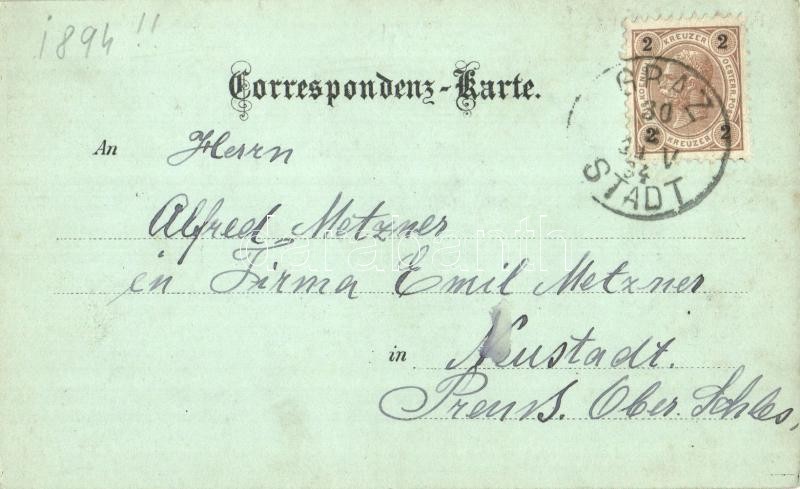 1894 !!
Correspondenz-Karte.
2 KREUZER 2
2 KREUZER 2
GRAZ
30
V
STADT
An Herrn
Alfred Metzner
in Firma Emil Metzner
in Neustadt.
Preuss. Ober. Schles,
Darabanth